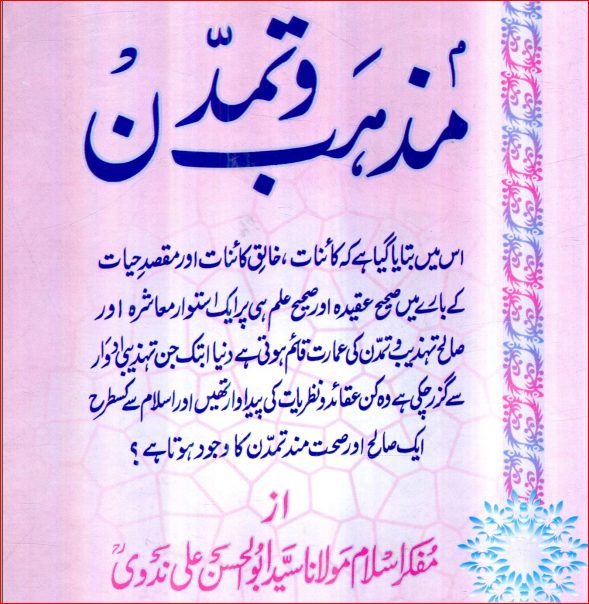 مذہب و تمدّن
اس میں بتایا گیا ہے کہ کائنات، خالقِ کائنات اور مقصدِ حیات
کے بارے میں صحیح عقیدہ اور صحیح علم ہی پر ایک استوار معاشرہ اور
صالح تہذیب و تمدّن کی عمارت قائم ہوتی ہے دنیا ابتک جن تہذیبی ادوار
سے گزر چکی ہے وہ کن عقائد و نظریات کی پیداوار تھیں اور اسلام سے کسطرح
ایک صالح اور صحت مند تمدّن کا وجود ہوتا ہے؟
از
مفکر اسلام مولانا سیّد ابوالحسن علی ندویؒ